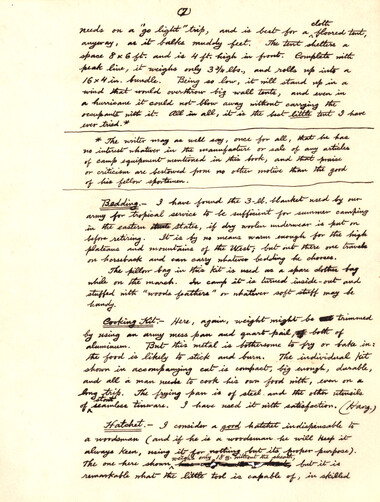 (7)
cloth
needs on a "go light" trip, and is best for a floored tent,
anyway, as it balks muddy feet. The tent shelters a
space 8 x 6 ft. and is 4 ft. high in front. Complete with
peak line, it weighs only 3¾ lbs., and rolls up into a
16 x 4 in. bundle. Being so low, it will stand up in a
wind that would overthrow big wall tents, and even in
a hurricane it could not blow away without carrying the
occupants with it. All in all, it is the best little tent I have
ever tried.*
* The writer may as well say, once for all, that he has
no interest whatever in the manufacture or sale of any articles
of camp equipment mentioned in this book, and that praise
or criticism are bestowed from no other motive than the good
of his fellow sportsmen.
Bedding.- I have found the 3-lb. blanket used by our
army for tropical service to be sufficient for summer camping
in the eastern states, if dry woolen underwear is put on
before retiring. It is by no means warm enough for the high
plateaus and mountains of the West; but out there one travels
on horseback and can carry whatever bedding he chooses.
The pillow bag in this kit is used as a spare clothes bag
while on the march. In camp it is turned inside-out and
stuffed with "woods feathers" or whatever soft stuff may be
handy.
Cooking Kit.- Here, again, weight might be trimmed
by using an army mess pan and quart pail, both of
aluminum. But this metal is bothersome to fry or bake in:
the food is likely to stick and burn. The individual kit
shown in accompanying cut is compact, big enough, durable,
and all a man needs to cook his own food with, even on a
long trip. The frying pan is of steel and the other utensils
of stout seamless tinware. I have used it with satisfaction.
Hatchet.- I consider a good hatchet indispensable to
a woodsman (and if he is a woodsman he will keep it
always keen, using it for nothing but its proper purpose).
The one here shown, weighs only 18 oz. without the sheath, but it is
remarkable what the little tool is capable of, in skilled